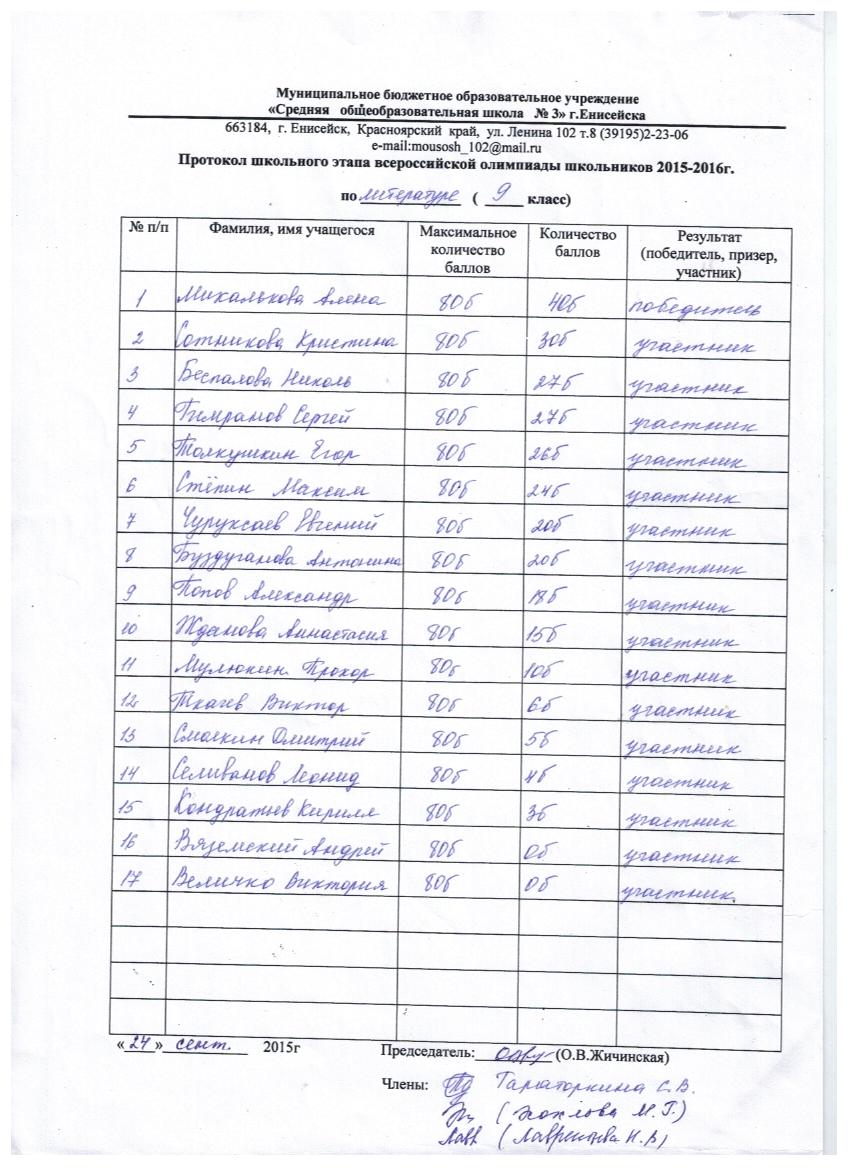 Муниципальное бюджетное образовательное учреждение
«Средняя общеобразовательная школа № 3» г.Енисейска
663184, г. Енисейск, Красноярский край, ул. Ленина 102 т.8 (39195)2-23-06
e-mail:mousosh_102@mail.ru
Протокол школьного этапа всероссийской олимпиады школьников 2015-2016г.
по литературе ( 9 класс)
№ п/п Фамилия, имя учащегося Максимальное количество баллов Количество баллов Результат (победитель, призер, участник)
1 Михалькова Алена 80б 40б победитель
2 Сотникова Кристина 80б 30б участник
3 Беспалова Николь 80б 27б участник
4 Гимранов Сергей 80б 27б участник
5 Толкушкин Егор 80б 26б участник
6 Стёпин Максим 80б 24б участник
7 Чуруксаев Евгений 80б 20б участник
8 Буздуганова Антонина 80б 20б участник
9 Попов Александр 80б 18б участник
10 Жданова Аннастасия 80б 15б участник
11 Мулюкин Прохор 80б 10б участник
12 Ткачев Виктор 80б 6б участник
13 Смолкин Дмитрий 80б 5б участник
14 Селиванов Леонид 80б 4б участник
15 Кондратьев Кирилл 80б 3б участник
16 Вяземский Андрей 80б 0б участник
17 Величко Виктория 80б 0б участник.
«24» сент. 2015г Председатель: (О.В.Жичинская)
Члены: Тараторкина С.В.
(Хохлова М.Г.)
(Лаврентьева Н.В)